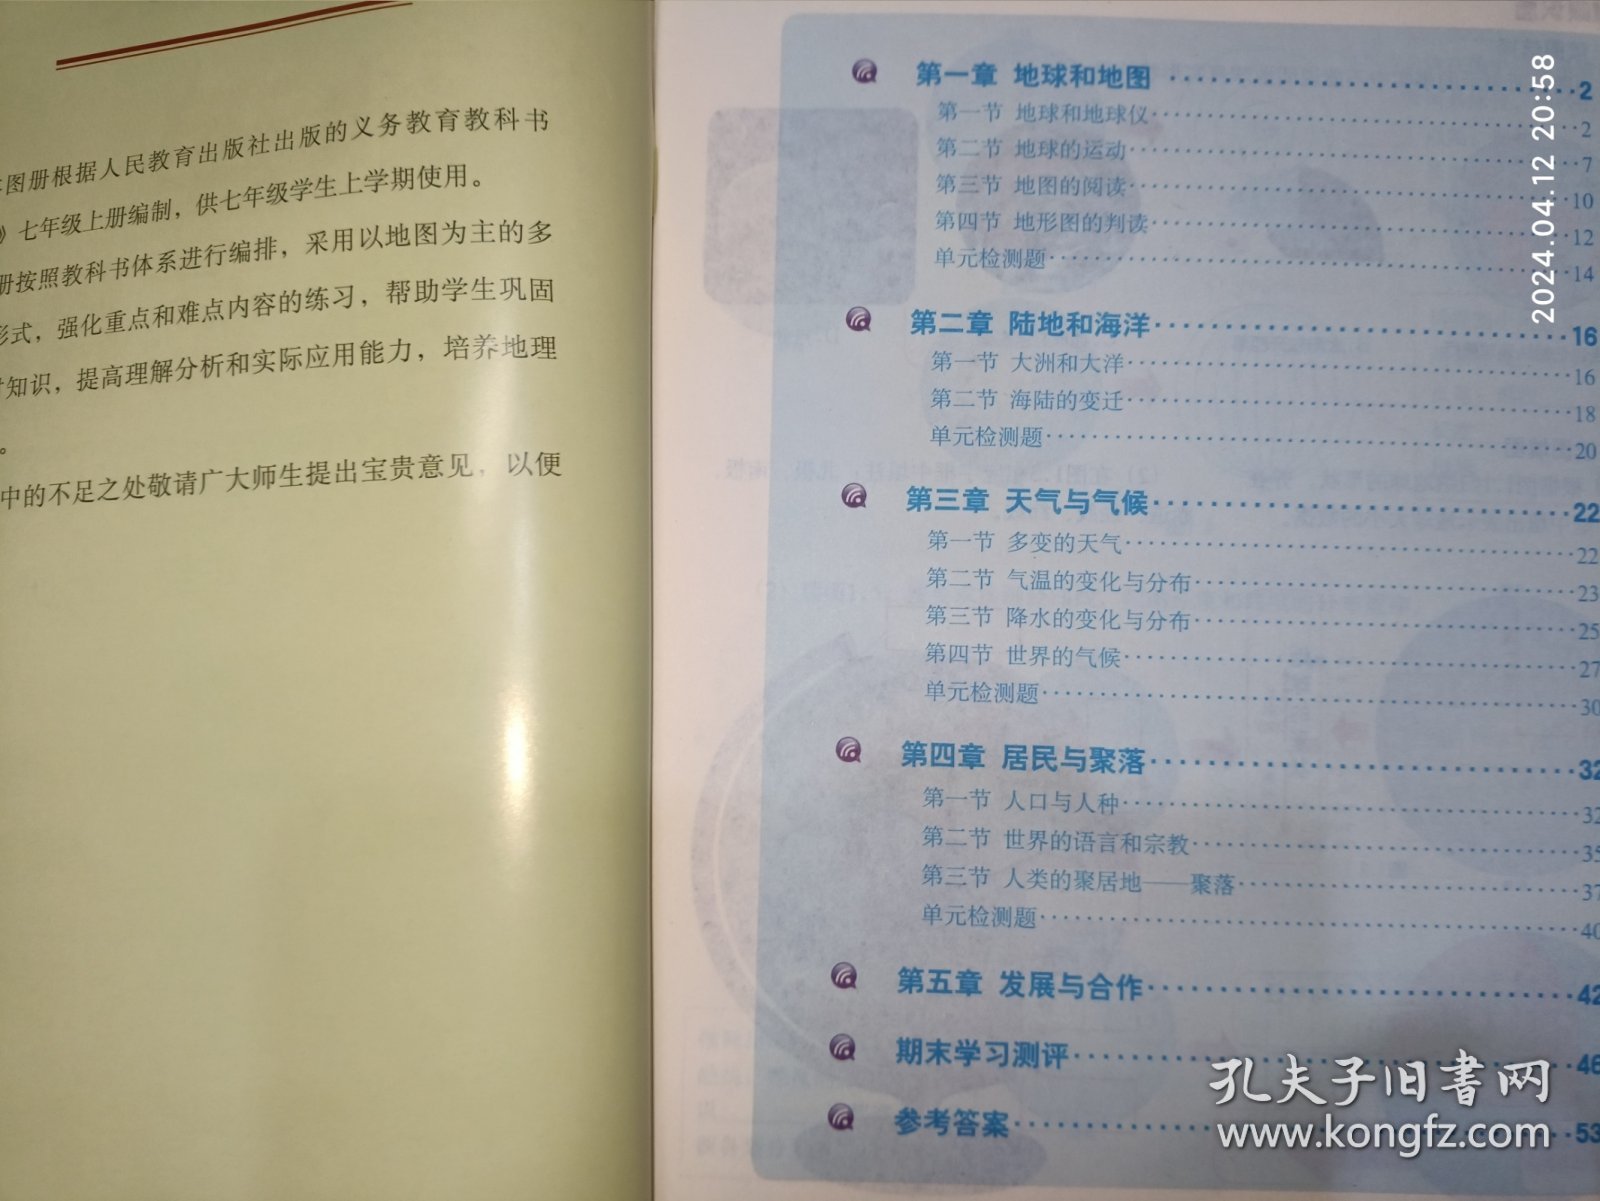 图册根据人民教育出版社出版的义务教育教科书
》七年级上册编制，供七年级学生上学期使用。
册按照教科书体系进行编排，采用以地图为主的多
形式，强化重点和难点内容的练习，帮助学生巩固
知识，提高理解分析和实际应用能力，培养地理
。
中的不足之处敬请广大师生提出宝贵意见，以便
第一章 地球和地图 2
第一节 地球和地球仪 2
第二节 地球的运动 7
第三节 地图的阅读 10
第四节 地形图的判读 12
单元检测题 14
第二章 陆地和海洋 16
第一节 大洲和大洋 16
第二节 海陆的变迁 18
单元检测题 20
第三章 天气与气候 22
第一节 多变的天气 22
第二节 气温的变化与分布 23
第三节 降水的变化与分布 25
第四节 世界的气候 27
单元检测题 30
第四章 居民与聚落 32
第一节 人口与人种 32
第二节 世界的语言和宗教 35
第三节 人类的聚居地——聚落 37
单元检测题 40
第五章 发展与合作 42
期末学习测评 46
参考答案 53
2024.04.12 20:58
孔夫子旧书网
www.kongfz.com